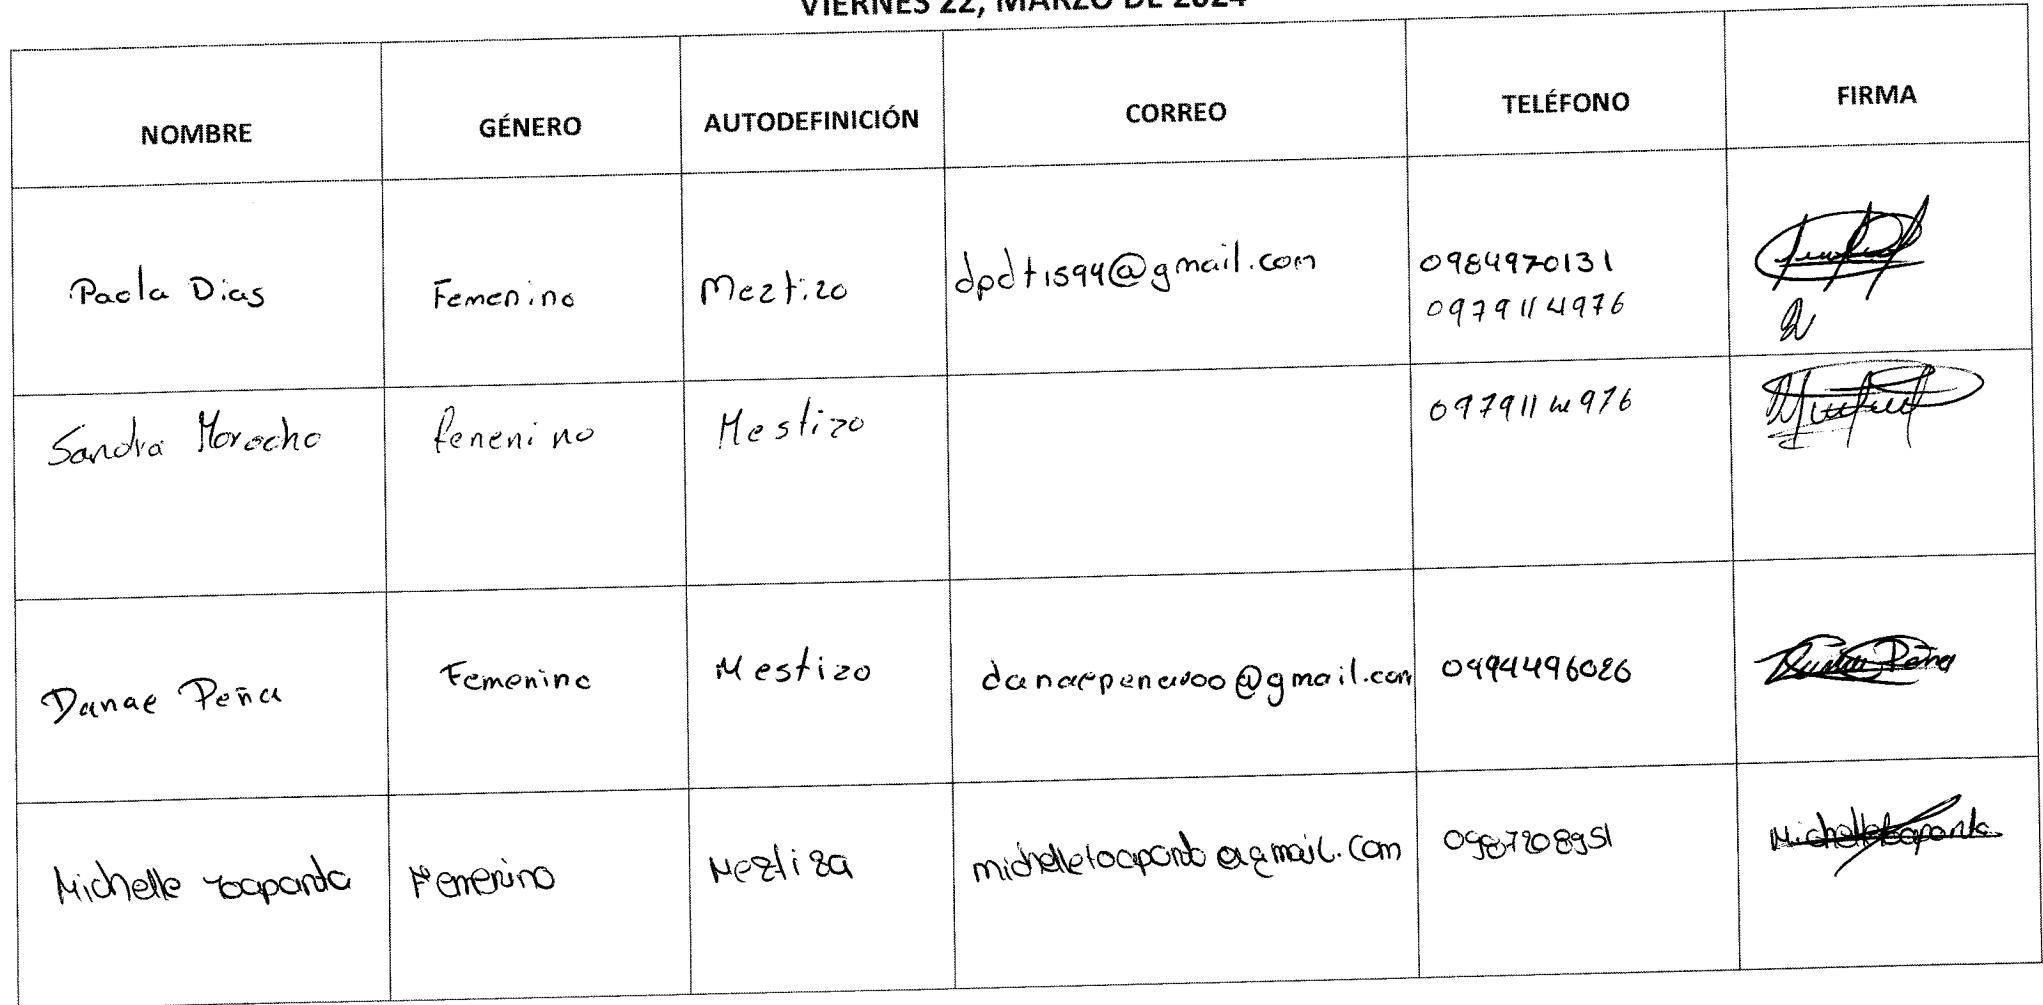 VIERNES 22, MARZO DE 2024
NOMBRE GÉNERO AUTODEFINICIÓN CORREO TELÉFONO FIRMA
Paola Dias Femenino Meztizo dpdt1594@gmail.com 0984970131
0979114976
Sandra Morocho fenenino Mestizo 0979114976
Danae Peña Femenino Mestizo @gmail.com 0994496026
Michelle Toapanta Femenino Meztiza michelletoapanta@gmail.com 0987208951 Michelle Toapanta